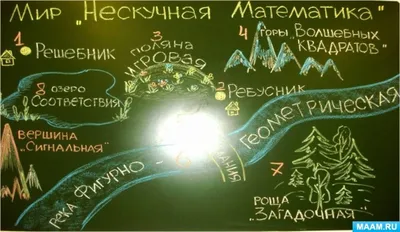 Мир "Нескучная Математика"
1
Решебник
3
поляна
Игровая
4
Горы Волшебных
Квадратов"
8 озеро
Соответствия
2
Ребусник
вершина
"Сигнальная"
река Фигурно -
Геометрическая
7
роща
"Загадочная"
MAAM.RU